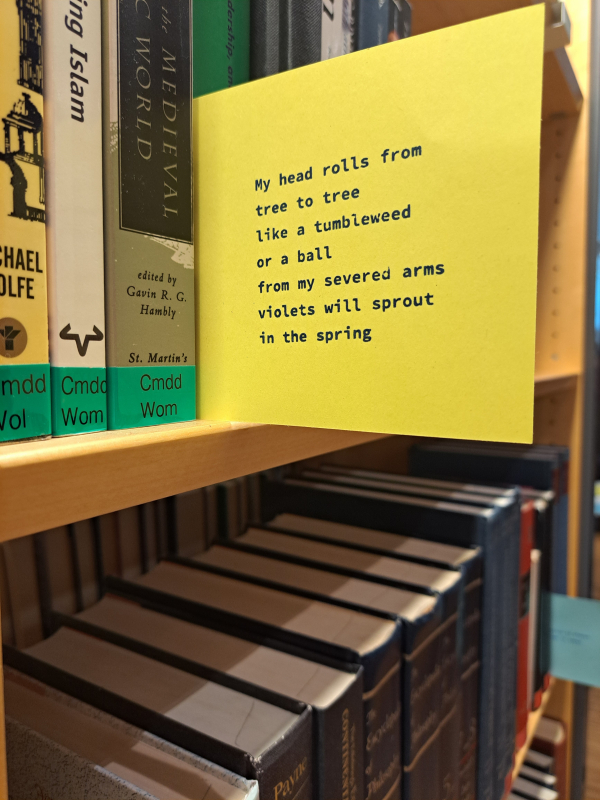 ing Islam
the MEDIEVAL
C WORLD
edited by
Gavin R. G.
Hambly
St. Martin's
CHAEL
OLFE
Cmdd
Wom
Cmdd
Wom
mdd
Wol
My head rolls from
tree to tree
like a tumbleweed
or a ball
from my severed arms
violets will sprout
in the spring
Payne